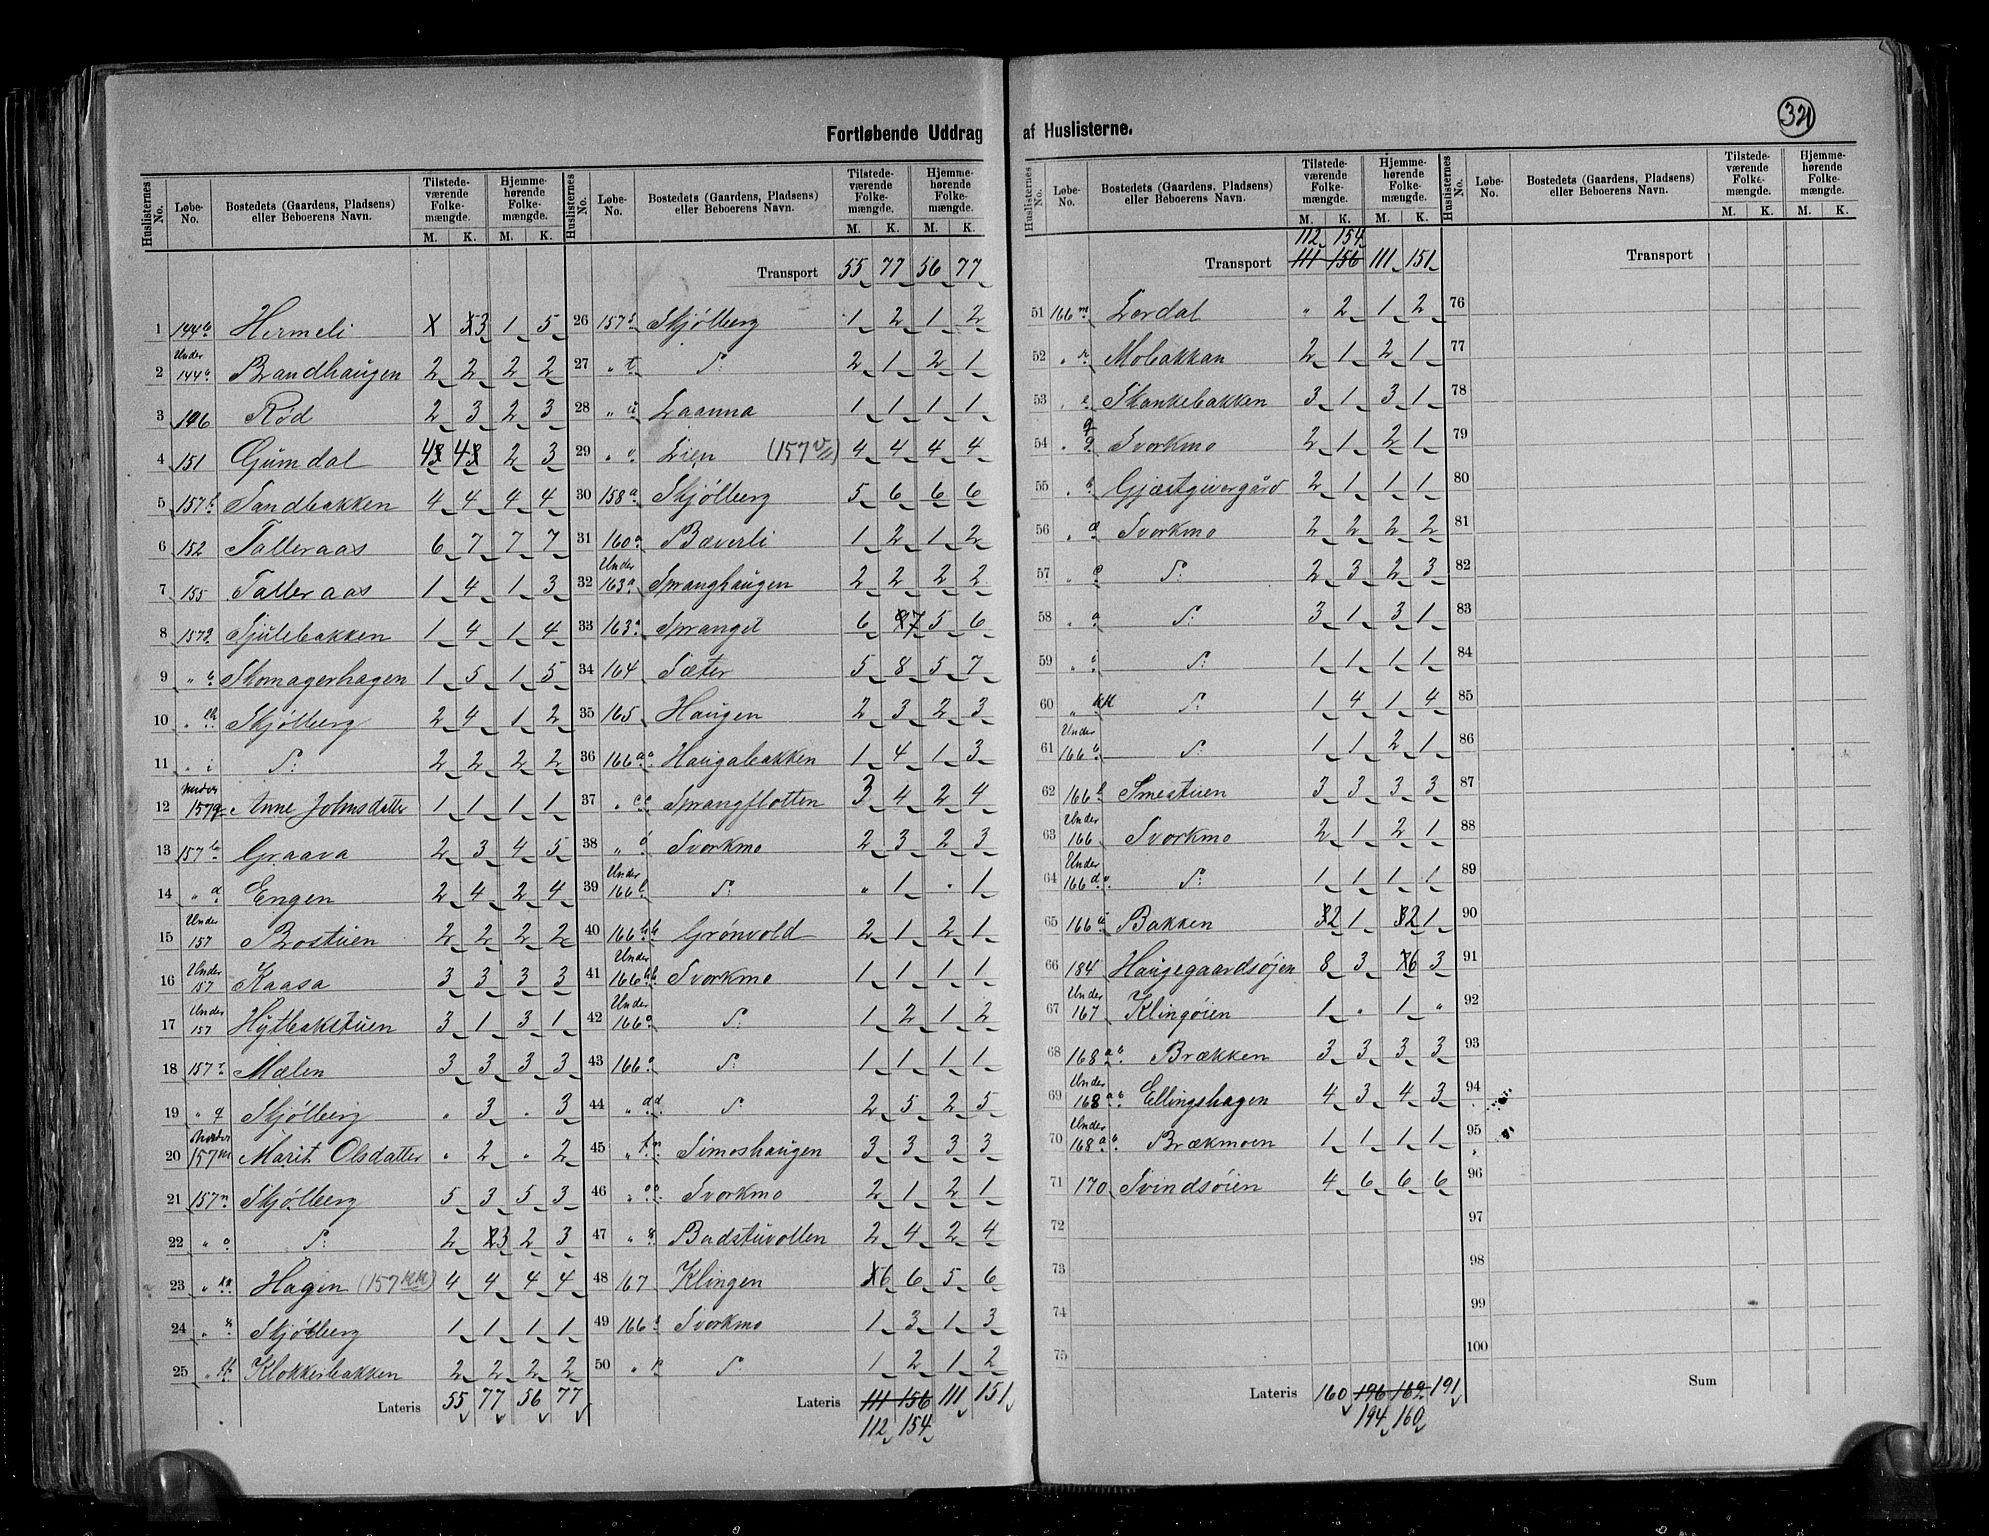 321
Fortløbende Uddrag af Huslisterne.
Huslisternes No. Løbe-No. Bostedets (Gaardens, Pladsens) eller Beboerens Navn. Tilstedeværende Folkemængde. M. K. Hjemmehørende Folkemængde. M. K.
1 144b Hermeli 3 1 5
2 Under 144b Brandhaugen 2 2 2 2
3 146 Rød 2 3 2 3
4 151 Gumdal 4 4 2 3
5 157b Sandbakken 4 4 4 4
6 152 Talleraas 6 7 7 7
7 155 Talleraas 1 4 1 3
8 1572 Sjulebakken 1 4 1 4
9 " Skomagerhagen 1 5 1 5
10 " Skjølberg 2 4 1 2
11 " i S: 2 2 2 2
12 Under 157g Anne Johnsdatter 1 1 1 1
13 157b Graava 2 3 4 5
14 " d Engen 2 4 2 4
15 Under 157 Bostuen 2 2 2 2
16 Under 157 Kaasa 3 3 3 3
17 Under 157 Hytbakstuen 3 1 3 1
18 157r Mælen 3 3 3 3
19 " q Skjølberg " 3 " 3
20 Under 157m Marit Olsdatter " 2 " 2
21 157n Skjølberg 5 3 5 3
22 " o S: 2 3 2 3
23 " Hagen (157kk) 4 4 4 4
24 " Skjølberg 1 1 1 1
25 " Klokkerbakken 2 2 2 2
Lateris 55 77 56 77
Huslisternes No. Løbe-No. Bostedets (Gaardens, Pladsens) eller Beboerens Navn. Tilstedeværende Folkemængde. M. K. Hjemmehørende Folkemængde. M. K.
Transport 55 77 56 77
26 157s Skjølberg 1 2 1 2
27 " t S: 2 1 2 1
28 " u Laanna 1 1 1 1
29 " v Lien (157v) 4 4 4 4
30 158a Skjølberg 5 6 6 6
31 160a Bæverli 1 2 1 2
32 Under 163a Spranghaugen 2 2 2 2
33 163a Spranget 6 7 5 6
34 164 Sæter 5 8 5 7
35 165 Haugen 2 3 2 3
36 166aa Haugabakken 1 4 1 3
37 " cc Sprangflotten 3 4 2 4
38 " Svorkmo 2 3 2 3
39 Under 166b S: " 1 " 1
40 166bb Grønvold 2 1 2 1
41 Under 166bb Svorkmo 1 1 1 1
42 Under 166o S: 1 2 1 2
43 166o S: 1 1 1 1
44 " dd S: 2 5 2 5
45 " Simoshaugen 3 3 3 3
46 " Svorkmo 2 1 2 1
47 " Badstuvollen 2 4 2 4
48 67 Klingen 6 6 5 6
49 166 Svorkmo 1 3 1 3
50 " S: 1 2 1 2
Lateris 111 156 111 151
112 154
Huslisternes No. Løbe-No. Bostedets (Gaardens, Pladsens) eller Beboerens Navn. Tilstedeværende Folkemængde. M. K. Hjemmehørende Folkemængde. M. K.
112 154
Transport 111 156 111 151
51 166m Lordal " 2 1 2
52 " Mobakkan 2 1 2 1
53 " Skankebakken 3 1 3 1
54 " q Svorkmo 2 1 2 1
55 " Gjæstgivergård 2 1 1 1
56 " Svorkmo 2 2 2 2
57 " S: 2 3 2 3
58 " S: 3 1 3 1
59 " S: 1 1 1 1
60 " kk S: 1 4 1 4
61 Under 166 S: 1 1 2 1
62 166 Smestuen 3 3 3 3
63 Under 166 Svorkmo 2 1 2 1
64 Under 166d S: 1 1 1 1
65 166 Bakken 2 1 2 1
66 184 Haugegaardsøjen 8 3 6 3
67 Under 167 Klingøien 1 " 1 "
68 168ab Brækken 3 3 3 3
69 Under 168ab Ellingshagen 4 3 4 3
70 Under 168ab Brækmoen 1 1 1 1
71 170 Svindsøien 4 6 6 6
72
73
74
75
Lateris 160 196 162 191
194 160
Huslisternes No. Løbe-No. Bostedets (Gaardens, Pladsens) eller Beboerens Navn. Tilstedeværende Folkemængde. M. K. Hjemmehørende Folkemængde. M. K.
Transport
76
77
78
79
80
81
82
83
84
85
86
87
88
89
90
91
92
93
94
95
96
97
98
99
100
Sum